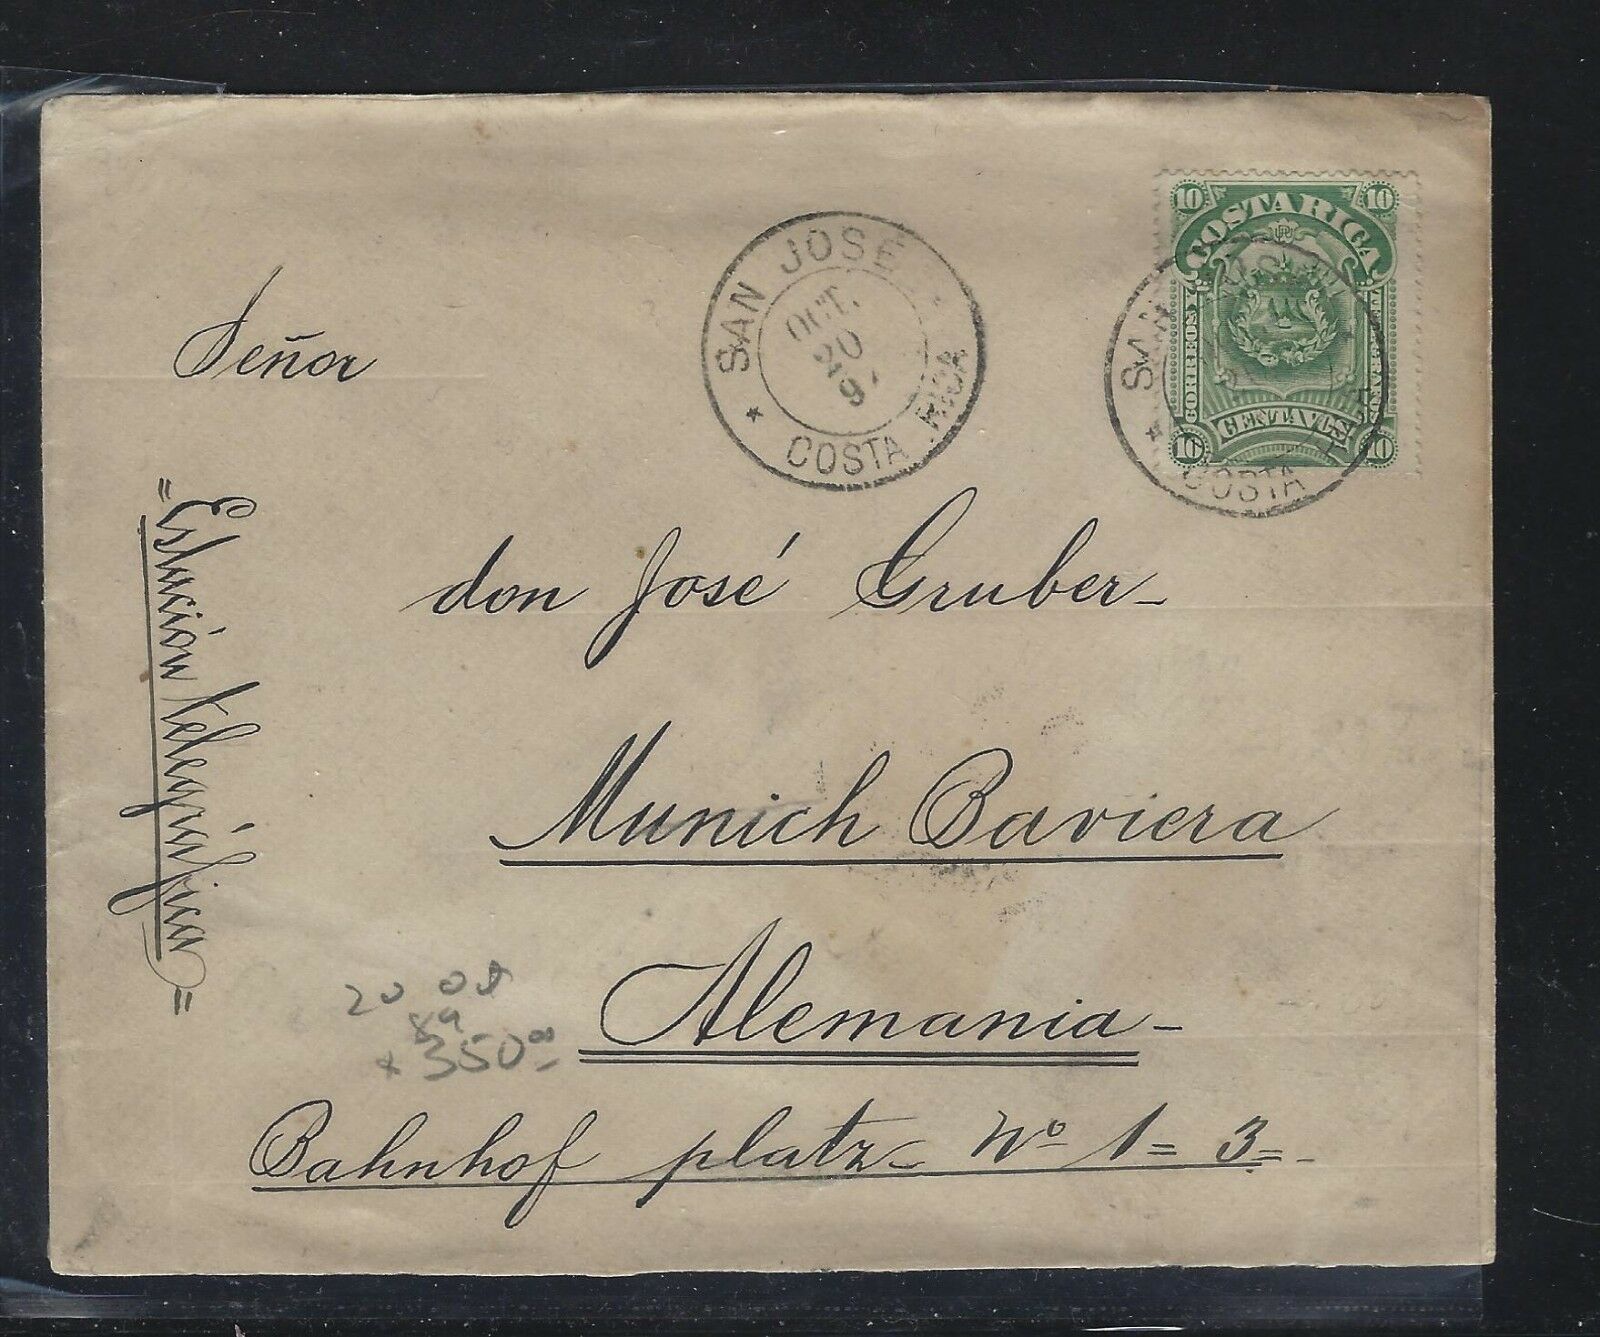 10 10
COSTA RICA
CORREOS
CENTAVOS
10 10
SAN JOSÉ
OCT.
20
COSTA RICA
SAN
COSTA
Señor
don José Gruber-
Munich Baviera
Alemania-
Bahnhof platz Nº 1= 3=
"Estación telegráfica"
20 08
350.00